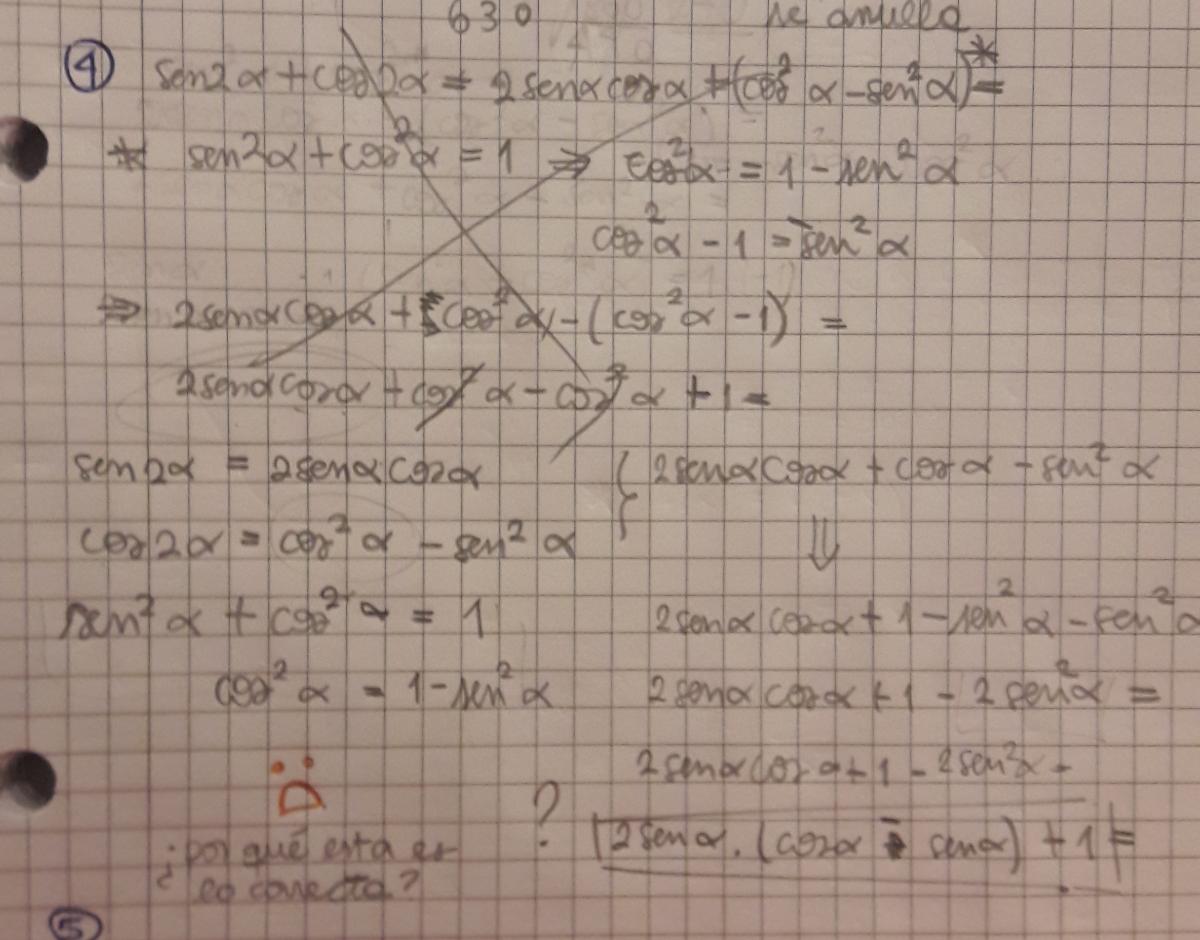 630 se anula
④ sen2α + cos2α = 2senαcosα + (cos²α - sen²α)* =
* sen²α + cos²α = 1 ⇒ cos²α = 1 - sen²α
cos²α - 1 = -sen²α
⇒ 2senαcosα + cos²α - (cos²α - 1) =
2senαcosα + cos²α - cos²α + 1 =
sen2α = 2senαcosα { 2senαcosα + cosα - sen²α
cos2α = cos²α - sen²α ⇓
sen²α + cos²α = 1 2senαcosα + 1 - sen²α - sen²α
cos²α = 1 - sen²α 2senαcosα + 1 - 2sen²α =
2senαcosα + 1 - 2sen²α -
? 2senα. (cosα - senα) + 1 =
¿por qué esta es
co correcta?
⑤